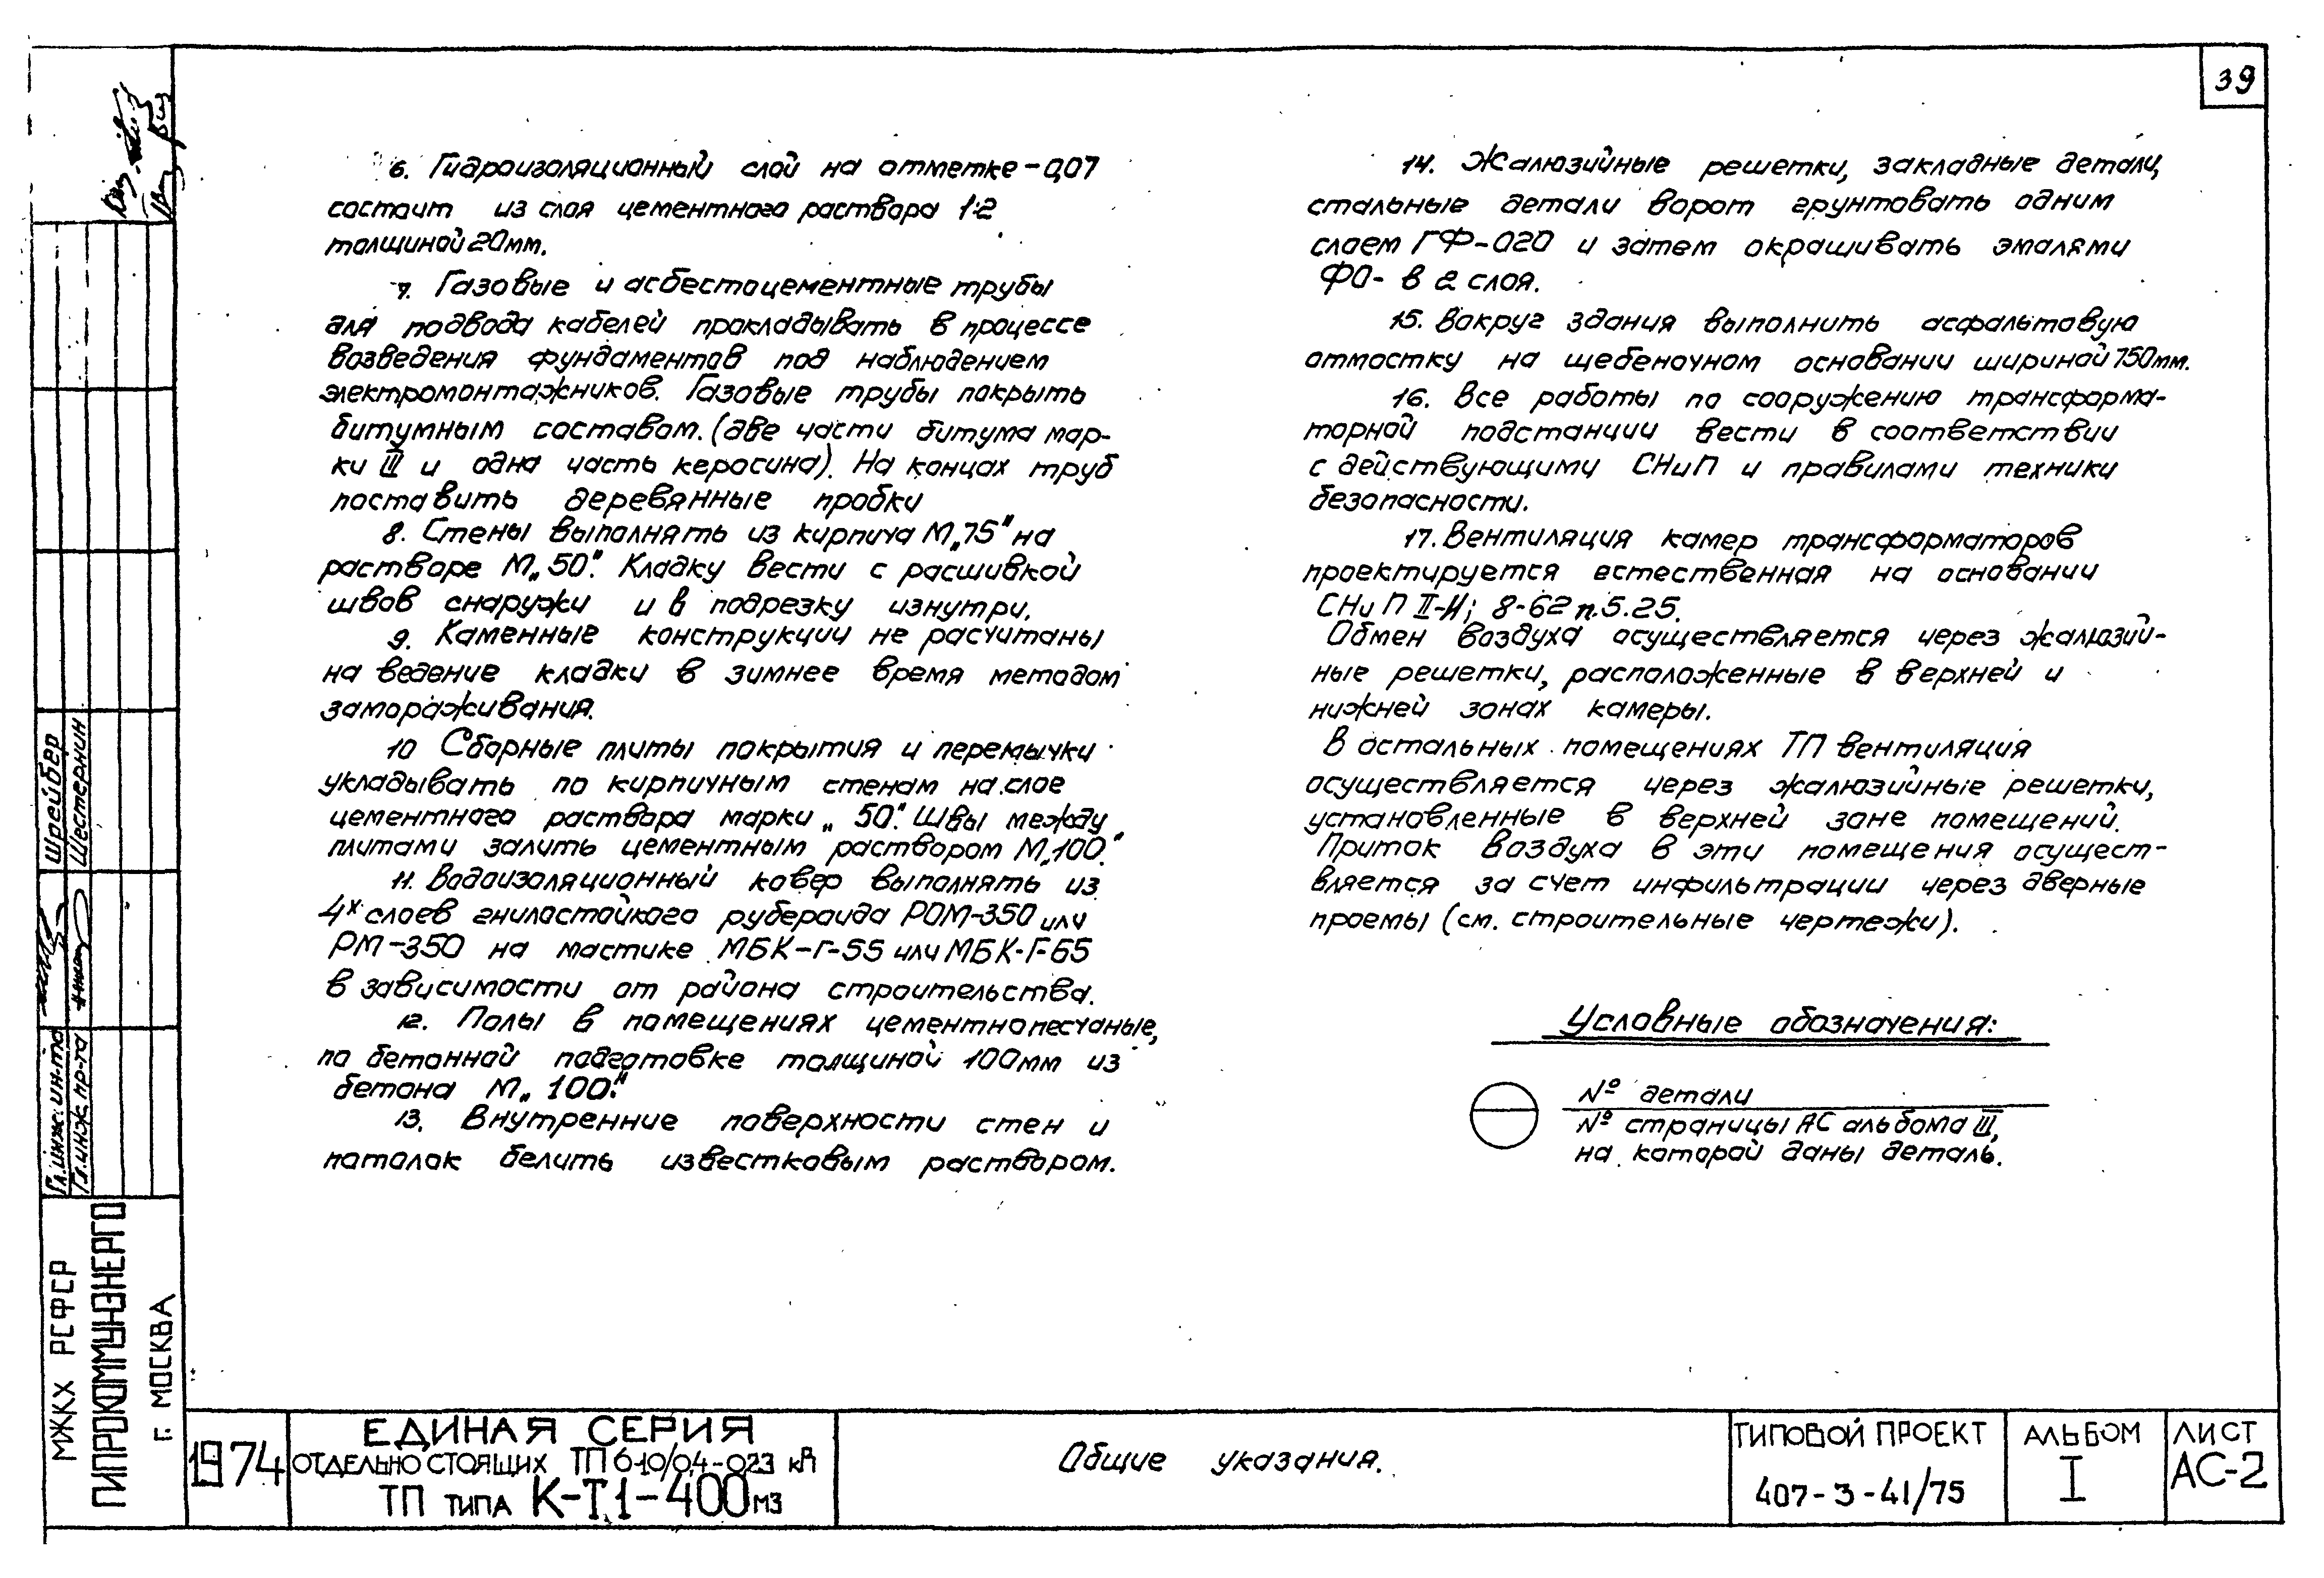 39
6. Гидроизоляционный слой на отметке -0,07
состоит из слоя цементного раствора 1:2
толщиной 20мм.
7. Газовые и асбестоцементные трубы
для подвода кабелей прокладывать в процессе
возведения фундаментов под наблюдением
электромонтажников. Газовые трубы покрыть
битумным составом. (две части битума мар-
ки III и одна часть керосина). На концах труб
поставить деревянные пробки
8. Стены выполнять из кирпича М„75" на
растворе М„50". Кладку вести с расшивкой
швов снаружи и в подрезку изнутри.
9. Каменные конструкции не расчитаны
на ведение кладки в зимнее время методом
замораживания.
10 Сборные плиты покрытия и перемычки
укладывать по кирпичным стенам на слое
цементного раствора марки „50". Швы между
плитами залить цементным раствором М„100".
11. Водоизоляционный ковер выполнять из
4х слоев гнилостойкого рубероида РОМ-350 или
РМ-350 на мастике МБК-Г-55 или МБК-Г-65
в зависимости от района строительства.
12. Полы в помещениях цементнопесчаные,
по бетонной подготовке толщиной 100мм из
бетона М„100".
13. Внутренние поверхности стен и
потолок белить известковым раствором.
14. Жалюзийные решетки, закладные детали,
стальные детали ворот грунтовать одним
слоем ГФ-020 и затем окрашивать эмалями
ФО- в 2 слоя.
15. Вокруг здания выполнить асфальтовую
отмостку на щебеночном основании шириной 750мм.
16. Все работы по сооружению трансформа-
торной подстанции вести в соответствии
с действующими СНиП и правилами техники
безопасности.
17. Вентиляция камер трансформаторов
проектируется естественная на основании
СНиП II-И; 8-62 п.5.25.
Обмен воздуха осуществляется через жалюзий-
ные решетки, расположенные в верхней и
нижней зонах камеры.
В остальных помещениях ТП вентиляция
осуществляется через жалюзийные решетки,
установленные в верхней зоне помещений.
Приток воздуха в эти помещения осущест-
вляется за счет инфильтрации через дверные
проемы (см. строительные чертежи).
Условные обозначения:
№ детали
№ страницы АС альбома III,
на которой даны деталь.
Гл.инж.ин-та Шрейбер
Гл.инж.пр-та Шестернин
МЖКХ РСФСР
ГИПРОКОММУНЭНЕРГО
Г. МОСКВА
1974
ЕДИНАЯ СЕРИЯ
ОТДЕЛЬНО СТОЯЩИХ ТП 6-10/0,4-0,23 кВ
ТП ТИПА К-Т1-400 м3
Общие указания.
ТИПОВОЙ ПРОЕКТ
407-3-41/75
АЛЬБОМ
I
ЛИСТ
АС-2